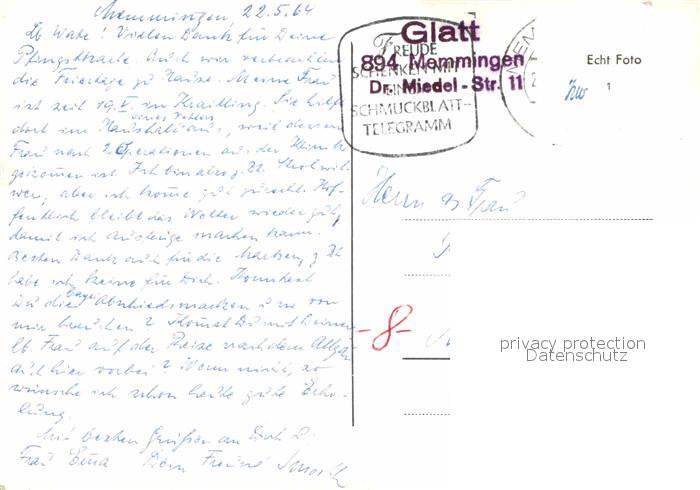 Memmingen, 22.5.64
Lb. Wate! Vielen Dank für Deine
Pfingstkarte. Auch wir verbrachten
die Feiertage zu Hause. Meine Frau
ist seit 19.V. in Krailling. Sie hilft
dort im Haushalt aus, weil dessen
eines Vetters
Frau nach 2 Operationen aus der Klinik
gekommen ist. Ich bin also z. Zt. Strohwit-
wer, aber ich komme gut zurecht. Hof-
fentlich bleibt das Wetter wieder gut,
damit ich Ausflüge machen kann.
Besten Dank auch für die Marken, z. Zt.
habe ich keine für Dich. Konntest
Du die Abschiedsmarken von
mir brauchen? Kommst Du mit Deiner
lb. Frau auf der Reise nach dem Allgäu
auch hier vorbei? Wenn nicht, so
wünsche ich schon heute gute Erho-
lung.
Mit besten Grüßen an Dich u.
Frau Dein Freund
Glatt
894 Memmingen
Dr.-Miedel-Str. 11
FREUDE
SCHENKEN MIT
EINEM
SCHMUCKBLATT-
TELEGRAMM
Echt Foto
1
Herrn u Frau
-8-
privacy protection
Datenschutz